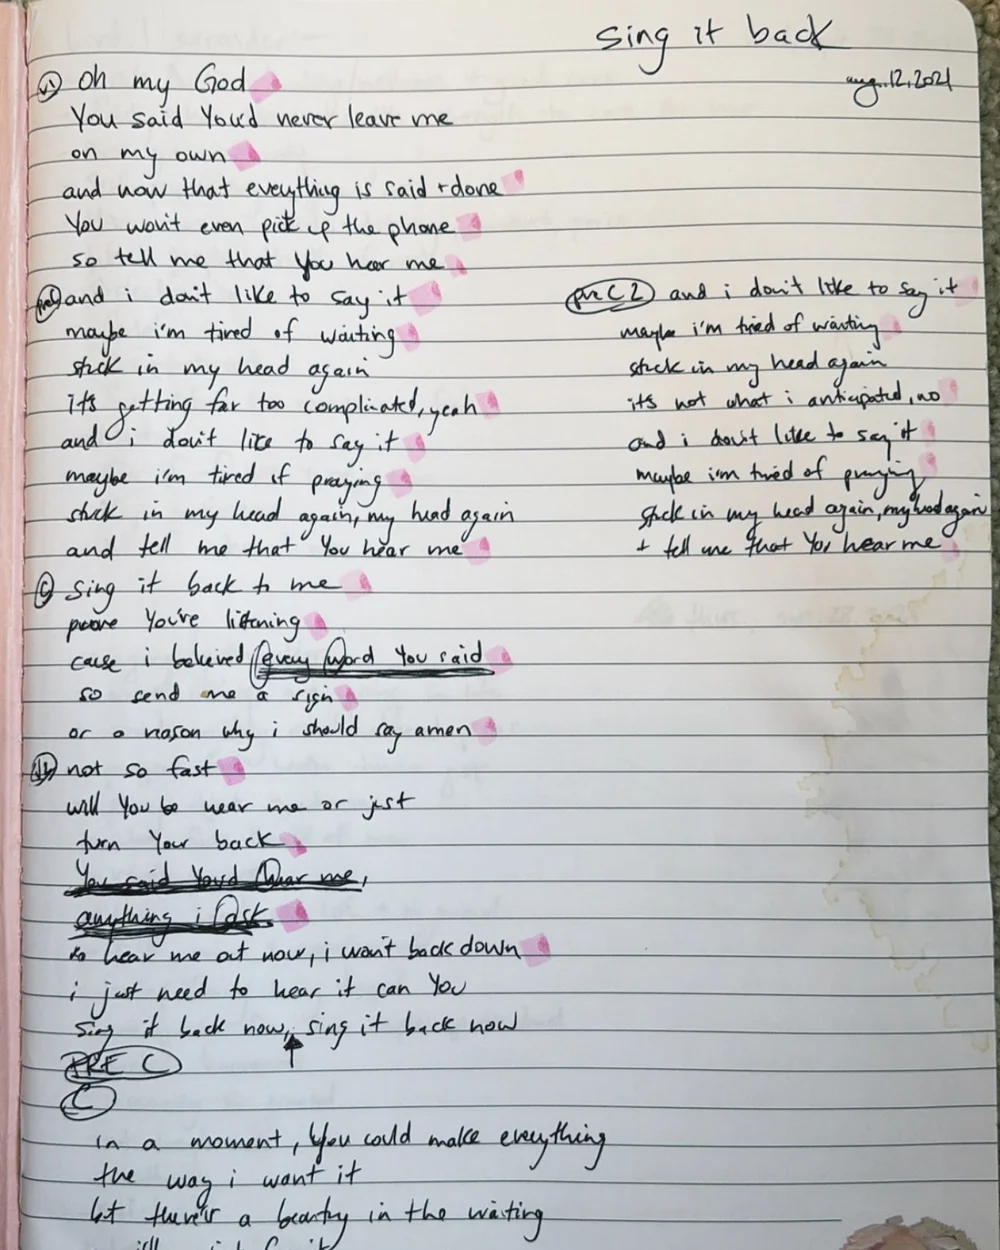 sing it back
aug. 12, 2021
V1 oh my God
You said You'd never leave me
on my own
and now that everything is said + done
You won't even pick up the phone
so tell me that You hear me
and i don't like to say it
maybe i'm tired of waiting
stuck in my head again
it's getting far too complicated, yeah
and i don't like to say it
maybe i'm tired of praying
stuck in my head again, my head again
and tell me that You hear me
pre C 2 and i don't like to say it
maybe i'm tired of waiting
stuck in my head again
it's not what i anticipated, no
and i don't like to say it
maybe i'm tired of praying
stuck in my head again, my head again
+ tell me that You hear me
C sing it back to me
prove You're listening
cause i believed every word You said
so send me a sign
or a reason why i should say amen
not so fast
will You be near me or just
turn Your back
You said You'd hear me,
anything i ask
so hear me out now, i won't back down
i just need to hear it can You
sing it back now, sing it back now
PRE C
C
in a moment, You could make everything
the way i want it
but there's a beauty in the waiting